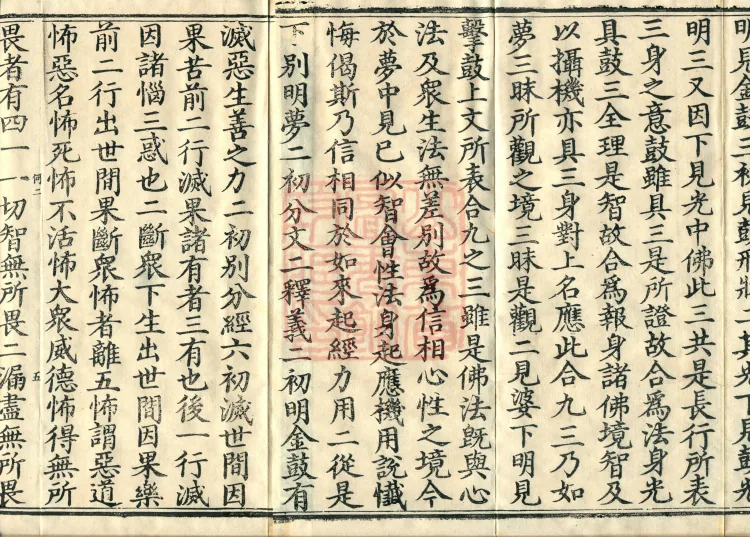 明見金鼓二初見鼓形狀二其光下見鼓光
明三又因下見光中佛此三共是長行所表
三身之意鼓雖具三是所證故合為法身光
具鼓三全理是智故合為報身諸佛境智及
以攝機亦具三身對上名應此合九三乃如
夢三昧所觀之境三昧是觀二見婆下明見
擊鼓上文所表合九之三雖是佛法既與心
法及眾生法無差別故為信相心性之境今
於夢中見已似智會性法身起應機用說懺
悔偈斯乃信相同於如來起經力用二從是
下別明夢二初分文二釋義二初明金鼓有
滅惡生善之力二初別分經六初滅世間因
果苦前二行滅果諸有者三有也後一行滅
因諸惱三惑也二斷眾下生出世間因果樂
前二行出世間果斷眾怖者離五怖謂惡道
怖惡名怖死怖不活怖大眾威德怖得無所
何二 五
畏者有四一一切智無所畏二漏盡無所畏